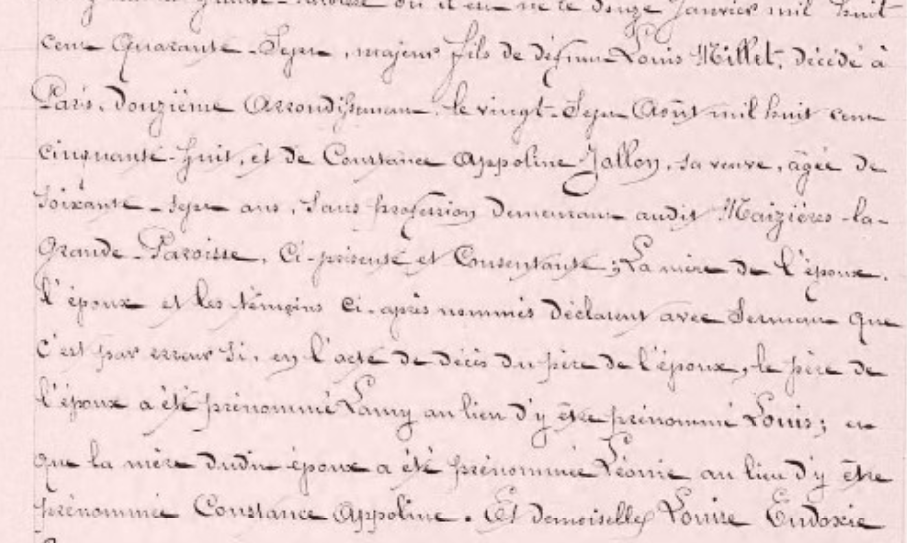 Grande-Paroisse où il est né le douze Janvier mil huit
cent Quarante-Sept, majeur fils de défunt Louis Millet, décédé à
Paris, Douzième Arrondissement, le vingt-Sept Août mil huit cent
cinquante-huit, et de Constance Appoline Jallon, sa veuve, âgée de
Soixante-sept ans, Sans profession demeurant audit Maizières-la-
Grande-Paroisse, Ci-présente et Consentante; La mère de l'époux,
l'époux et les témoins ci-après nommés déclarent avec Serment que
c'est par erreur Si, en l'acte de décès du père de l'époux, le père de
l'époux a été prénommé Lamy au lieu d'y être prénommé Louis; et
que la mère dudit époux a été prénommée Léonie au lieu d'y être
prénommée Constance Appoline. Et demoiselle Louise Eudoxie